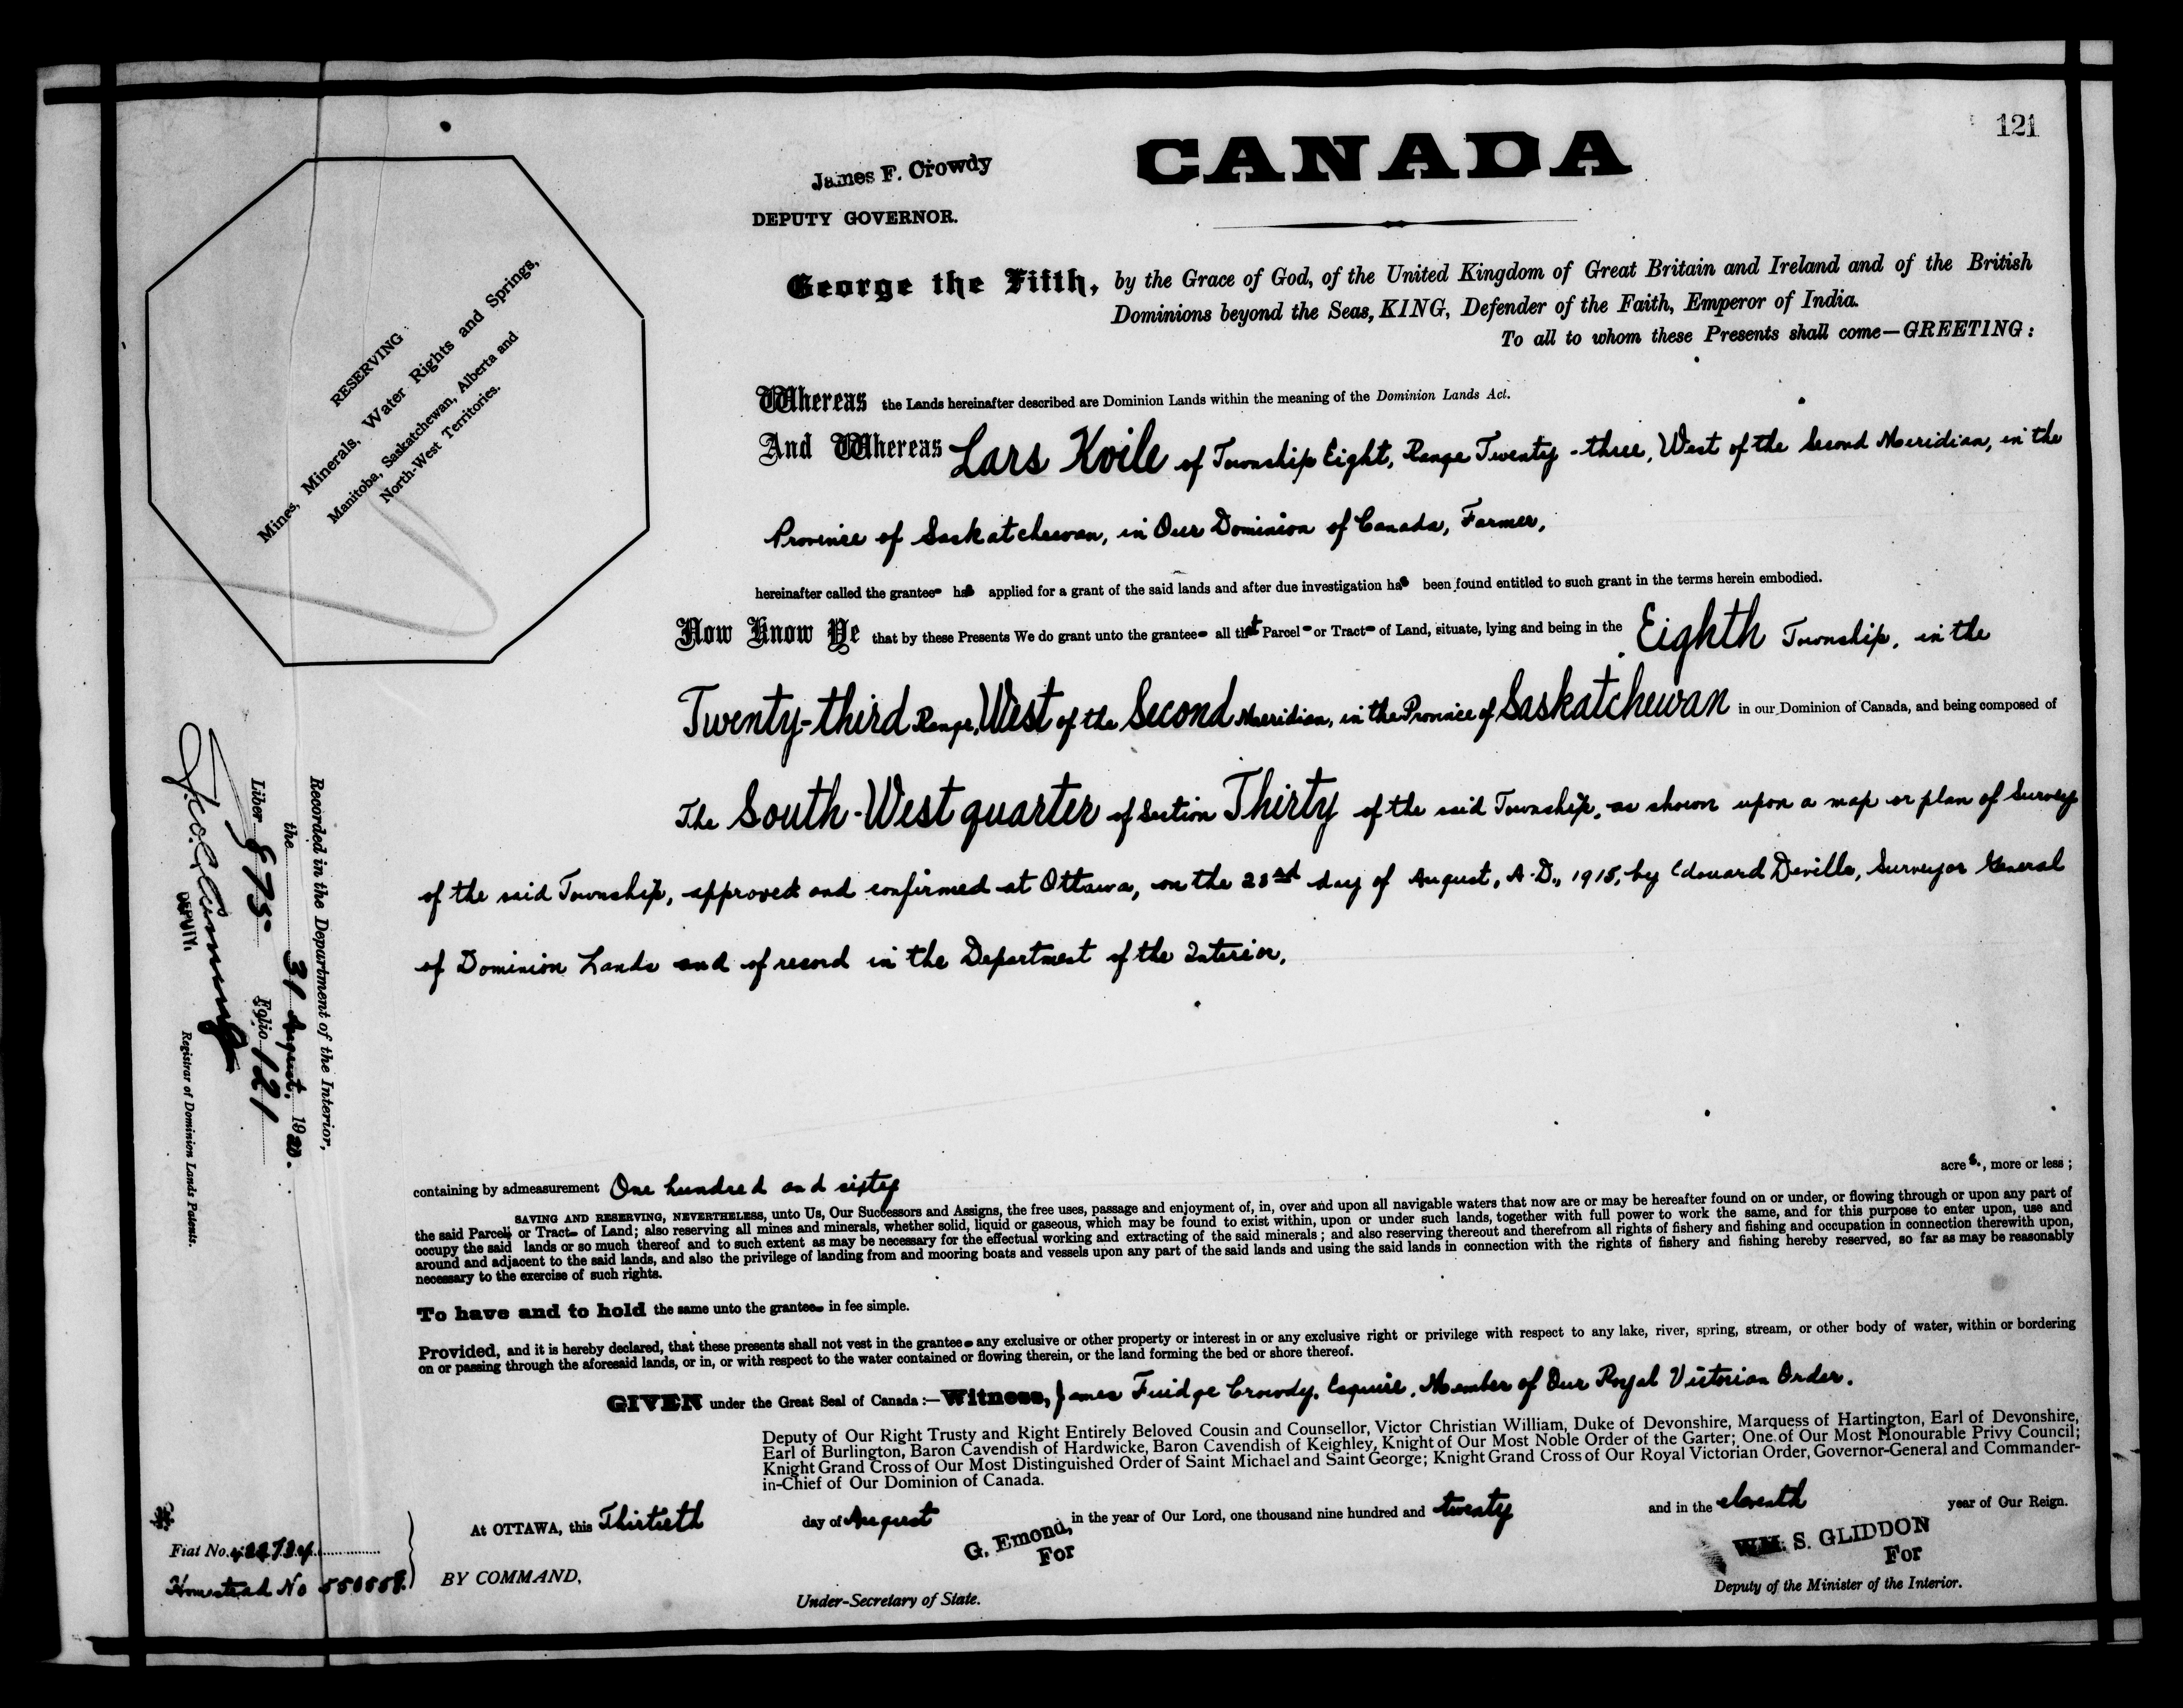 121
CANADA
James F. Crowdy
DEPUTY GOVERNOR.
George the Fifth, by the Grace of God, of the United Kingdom of Great Britain and Ireland and of the British
Dominions beyond the Seas, KING, Defender of the Faith, Emperor of India.
To all to whom these Presents shall come—GREETING:
RESERVING
Mines, Minerals, Water Rights and Springs,
Manitoba, Saskatchewan, Alberta and
North-West Territories.
Whereas the Lands hereinafter described are Dominion Lands within the meaning of the Dominion Lands Act.
And Whereas Lars Kvile of Township Eight, Range Twenty-three, West of the Second Meridian, in the
Province of Saskatchewan, in Our Dominion of Canada, Farmer,
hereinafter called the grantee has applied for a grant of the said lands and after due investigation has been found entitled to such grant in the terms herein embodied.
Now Know Ye that by these Presents We do grant unto the grantee all that Parcel or Tract of Land, situate, lying and being in the Eighth Township, in the
Twenty-third Range, West of the Second Meridian, in the Province of Saskatchewan in our Dominion of Canada, and being composed of
The South-West quarter of Section Thirty of the said Township, as shown upon a map or plan of Survey
of the said Township, approved and confirmed at Ottawa, on the 23rd day of August, A.D., 1915, by Edouard Deville, Surveyor General
of Dominion Lands and of record in the Department of the Interior,
containing by admeasurement One hundred and sixty acres, more or less;
SAVING AND RESERVING, NEVERTHELESS, unto Us, Our Successors and Assigns, the free uses, passage and enjoyment of, in, over and upon all navigable waters that now are or may be hereafter found on or under, or flowing through or upon any part of
the said Parcel or Tract of Land; also reserving all mines and minerals, whether solid, liquid or gaseous, which may be found to exist within, upon or under such lands, together with full power to work the same, and for this purpose to enter upon, use and
occupy the said lands or so much thereof and to such extent as may be necessary for the effectual working and extracting of the said minerals; and also reserving thereout and therefrom all rights of fishery and fishing and occupation in connection therewith upon,
around and adjacent to the said lands, and also the privilege of landing from and mooring boats and vessels upon any part of the said lands and using the said lands in connection with the rights of fishery and fishing hereby reserved, so far as may be reasonably
necessary to the exercise of such rights.
To have and to hold the same unto the grantee in fee simple.
Provided, and it is hereby declared, that these presents shall not vest in the grantee any exclusive or other property or interest in or any exclusive right or privilege with respect to any lake, river, spring, stream, or other body of water, within or bordering
on or passing through the aforesaid lands, or in, or with respect to the water contained or flowing therein, or the land forming the bed or shore thereof.
GIVEN under the Great Seal of Canada:—Witness, James Fuidge Crowdy, Esquire, Member of Our Royal Victorian Order.
Deputy of Our Right Trusty and Right Entirely Beloved Cousin and Counsellor, Victor Christian William, Duke of Devonshire, Marquess of Hartington, Earl of Devonshire,
Earl of Burlington, Baron Cavendish of Hardwicke, Baron Cavendish of Keighley, Knight of Our Most Noble Order of the Garter; One of Our Most Honourable Privy Council;
Knight Grand Cross of Our Most Distinguished Order of Saint Michael and Saint George; Knight Grand Cross of Our Royal Victorian Order, Governor-General and Commander-
in-Chief of Our Dominion of Canada.
At OTTAWA, this Thirtieth day of August in the year of Our Lord, one thousand nine hundred and twenty and in the eleventh year of Our Reign.
BY COMMAND,
G. Emond,
For
Under-Secretary of State.
WM. S. GLIDDON
For
Deputy of the Minister of the Interior.
Fiat No.
Homestead No
Recorded in the Department of the Interior,
the 31 August, 1920.
Liber 875 Folio 121
DEPUTY.
Registrar of Dominion Lands Patents.